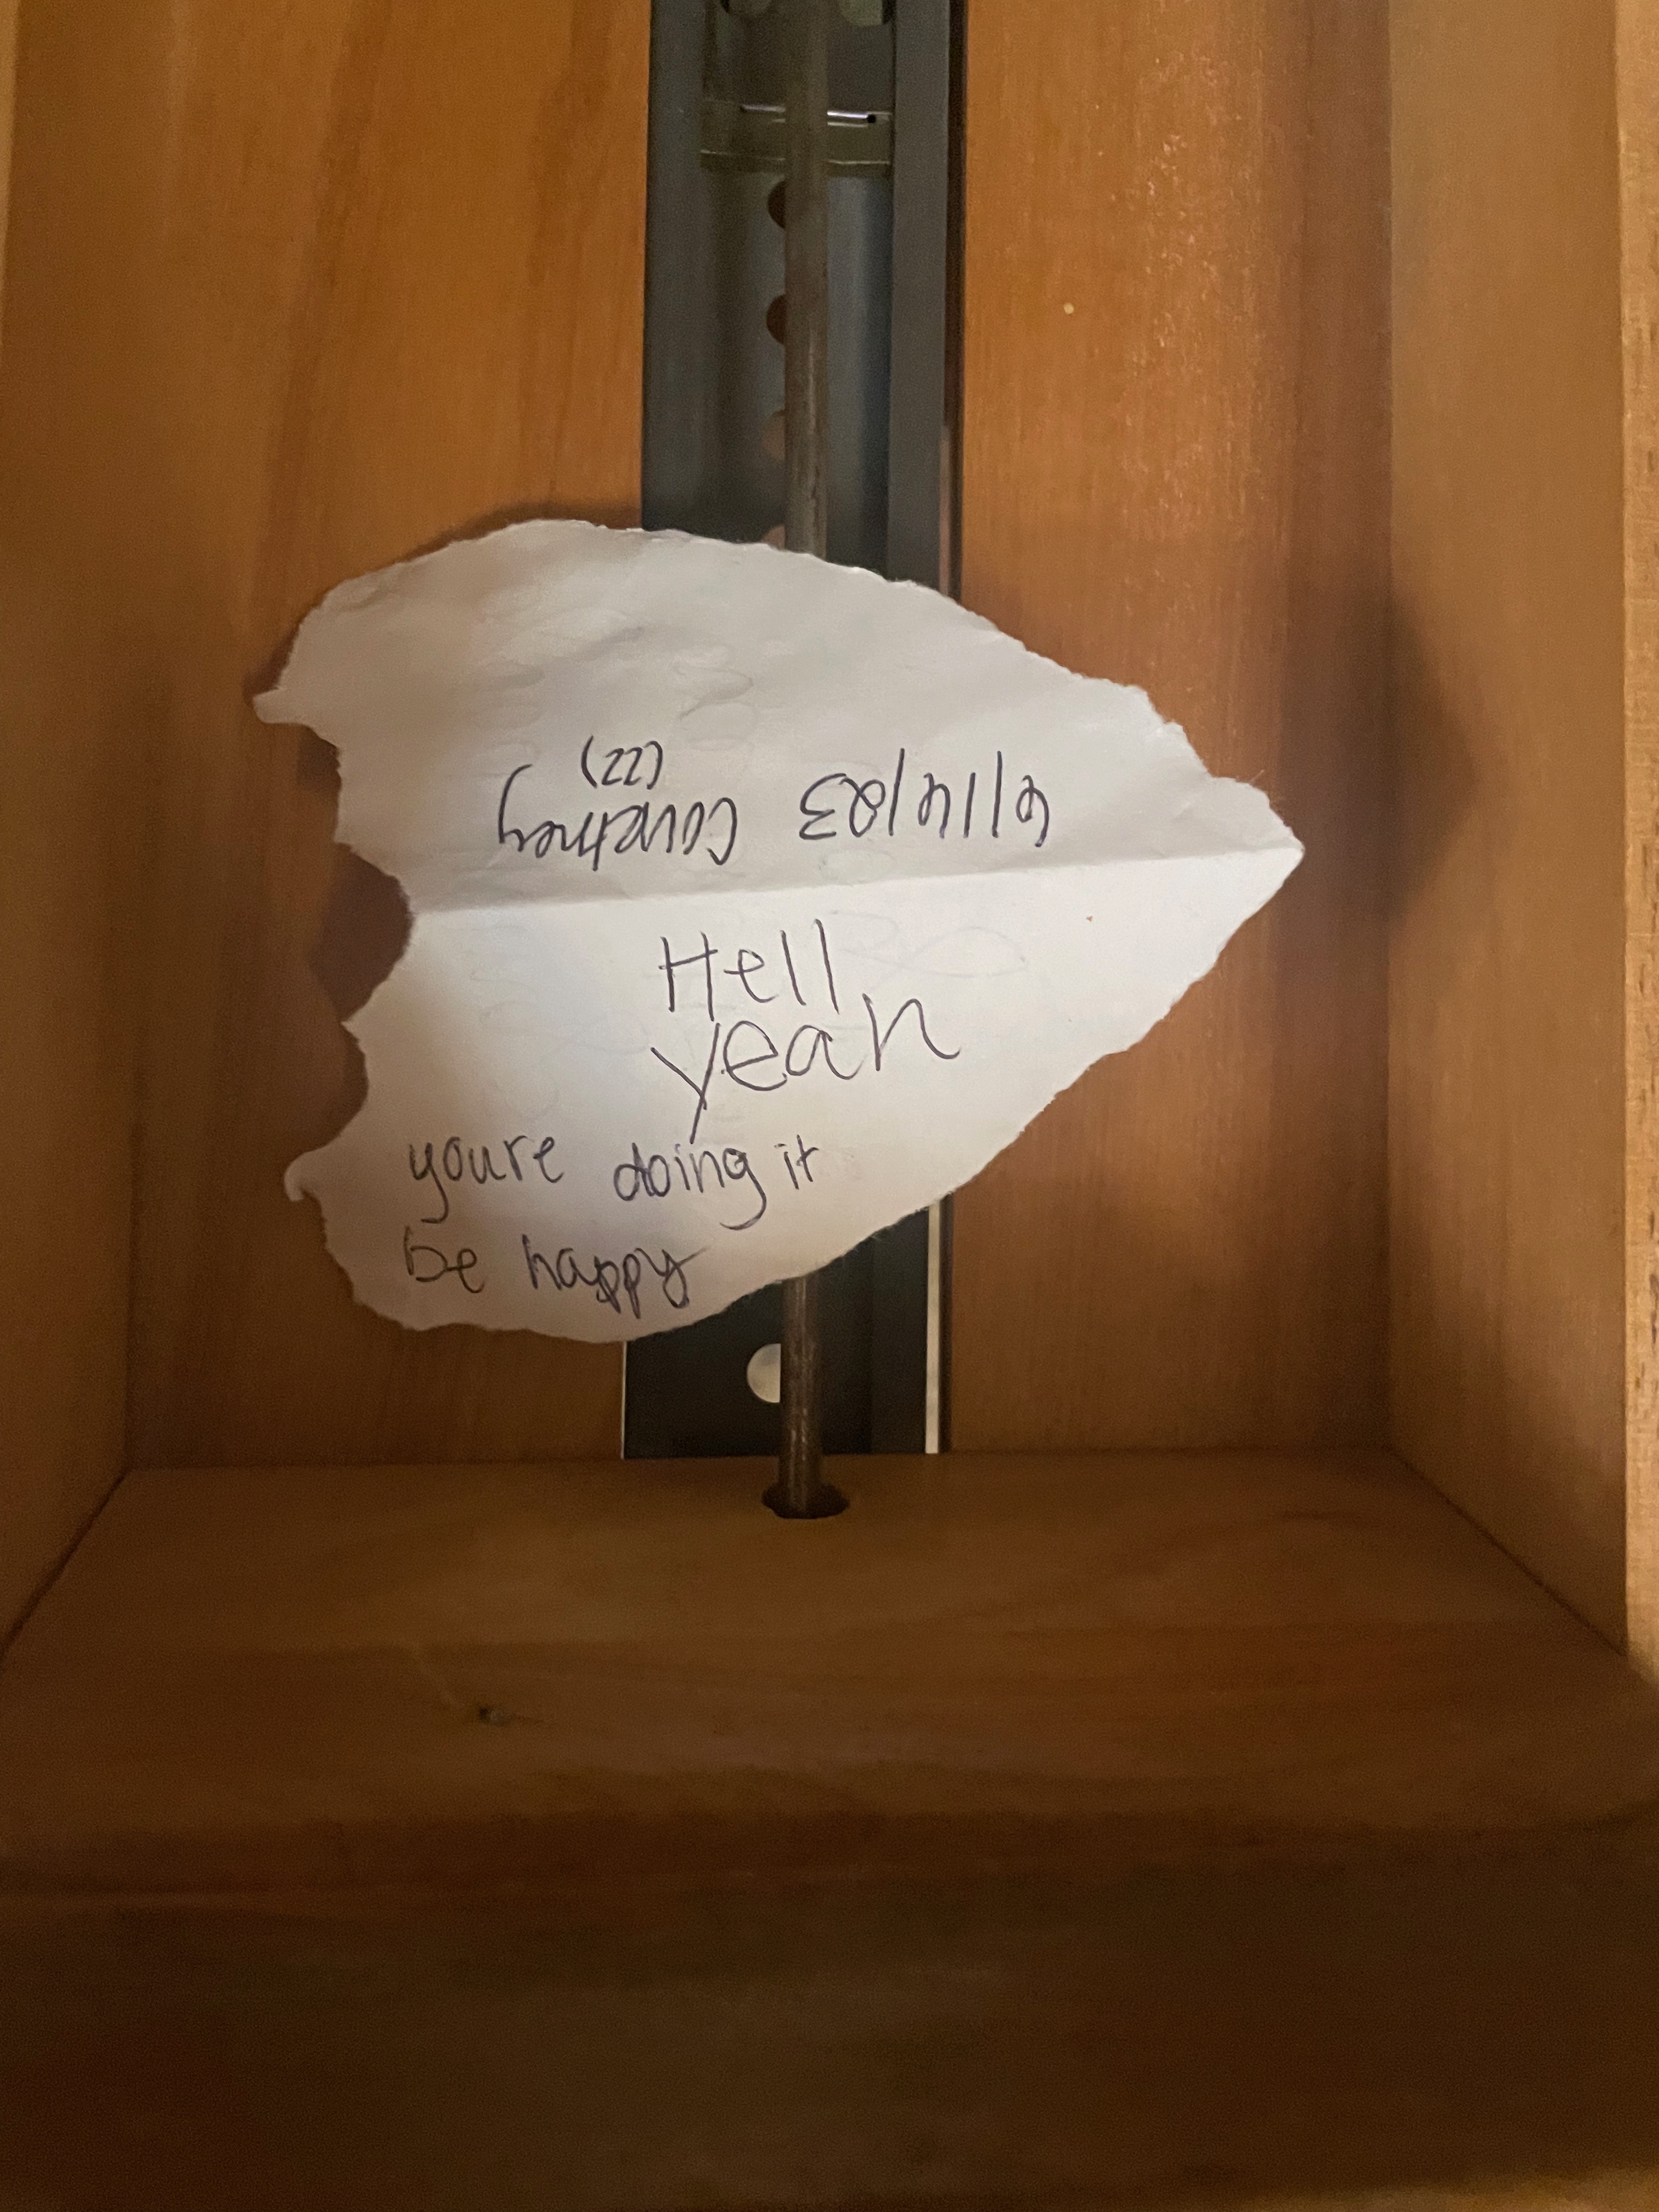 6/14/23 Courtney
(22)
Hell
yeah
youre doing it
be happy